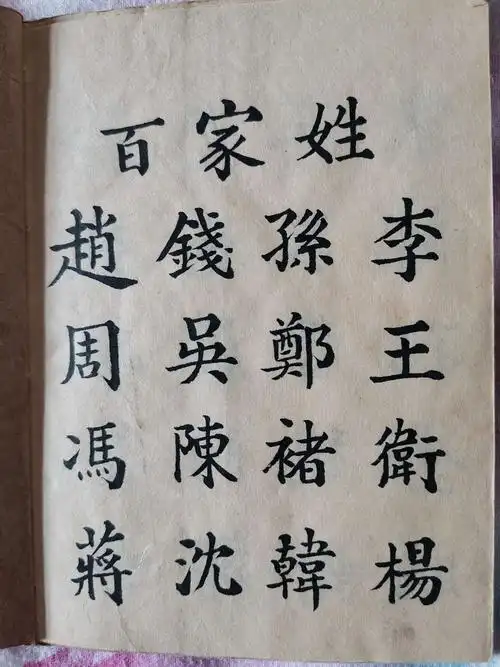 百家姓
趙錢孫李
周吳鄭王
馮陳褚衛
蔣沈韓楊